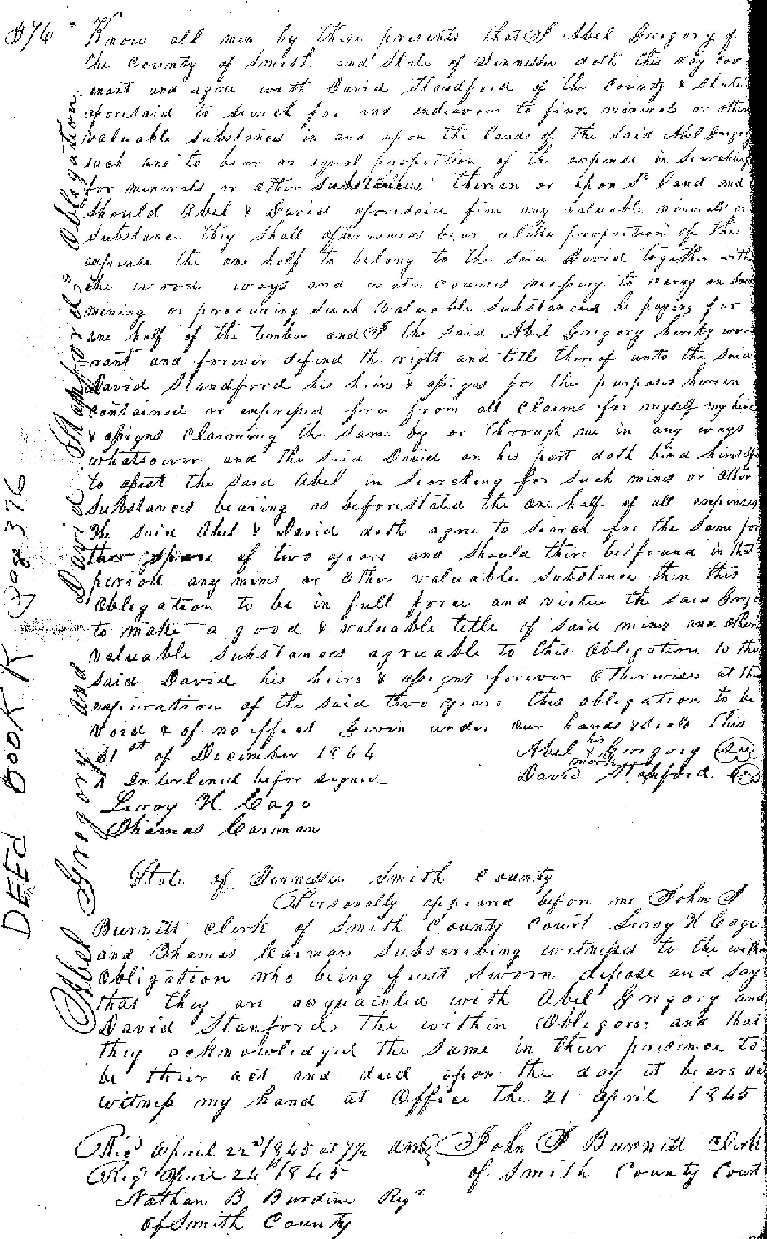 376
Know all men by these presents that I Abel Gregory of
the County of Smith and State of Tennessee doth this day cov
enant and agree with David Standford of the County & State
aforesaid to search for and endeavor to find minerals or other
valuable substances in and upon the lands of the said Abel Gregory
such are to bear an equal proportion of the expense in searching
for minerals or other substances therein or upon sd land and
should Abel & David aforesaid find any valuable minerals or
substance they shall afterwards bear a like proportion of the
expense the one half to belong to the said David together with
the wood ways and water courses necessary to carry on said
mining or procuring such valuable substances he paying for
one half of the timber and I the said Abel Gregory hereby war
rant and forever defend the right and title thereof unto the said
David Standford his heirs & assigns for the purposes herein
contained or expressed free from all claims for myself my heirs
& assigns claiming the same by or through me in any ways
whatsoever and the said David on his part doth bind himself
to assist the said Abel in searching for such mines or other
substances bearing as beforestated the one half of all expenses
the said Abel & David doth agree to search for the same for
the space of two years and should there be found in that
period any mines or other valuable substance then this
obligation to be in full force and virtue the said Grego
to make a good & valuable title of said mines and other
valuable substances agreeable to this obligation to the
said David his heirs & assigns forever otherwises at the
expiration of the said two years this obligation to be
void & of no effect Given under our hands & seals this
31st of December 1844
Abel his mark Gregory
A Interlined before signed
David Stanford
Leroy H. Cage
Thomas Carman
State of Tennessee Smith County
Personally appeared before me John S
Burnett Clerk of Smith County Court Leroy H Cage
and Thomas Carman subscribing witnesses to the within
obligation who being first sworn depose and say
that they are acquainted with Abel Gregory and
David Stanford the within obligors and that
they acknowledged the same in their presence to
be their act and deed upon the day it bears date
witness my hand at Office the 21 April 1845
Regd April 22d 1845 at
John S Burnett Clerk
Regd April 24th 1845
of Smith County Court
Nathan B Burdine Regr
of Smith County
Abel Gregory and David Stafford's Obligation
DEED BOOK K Page 376